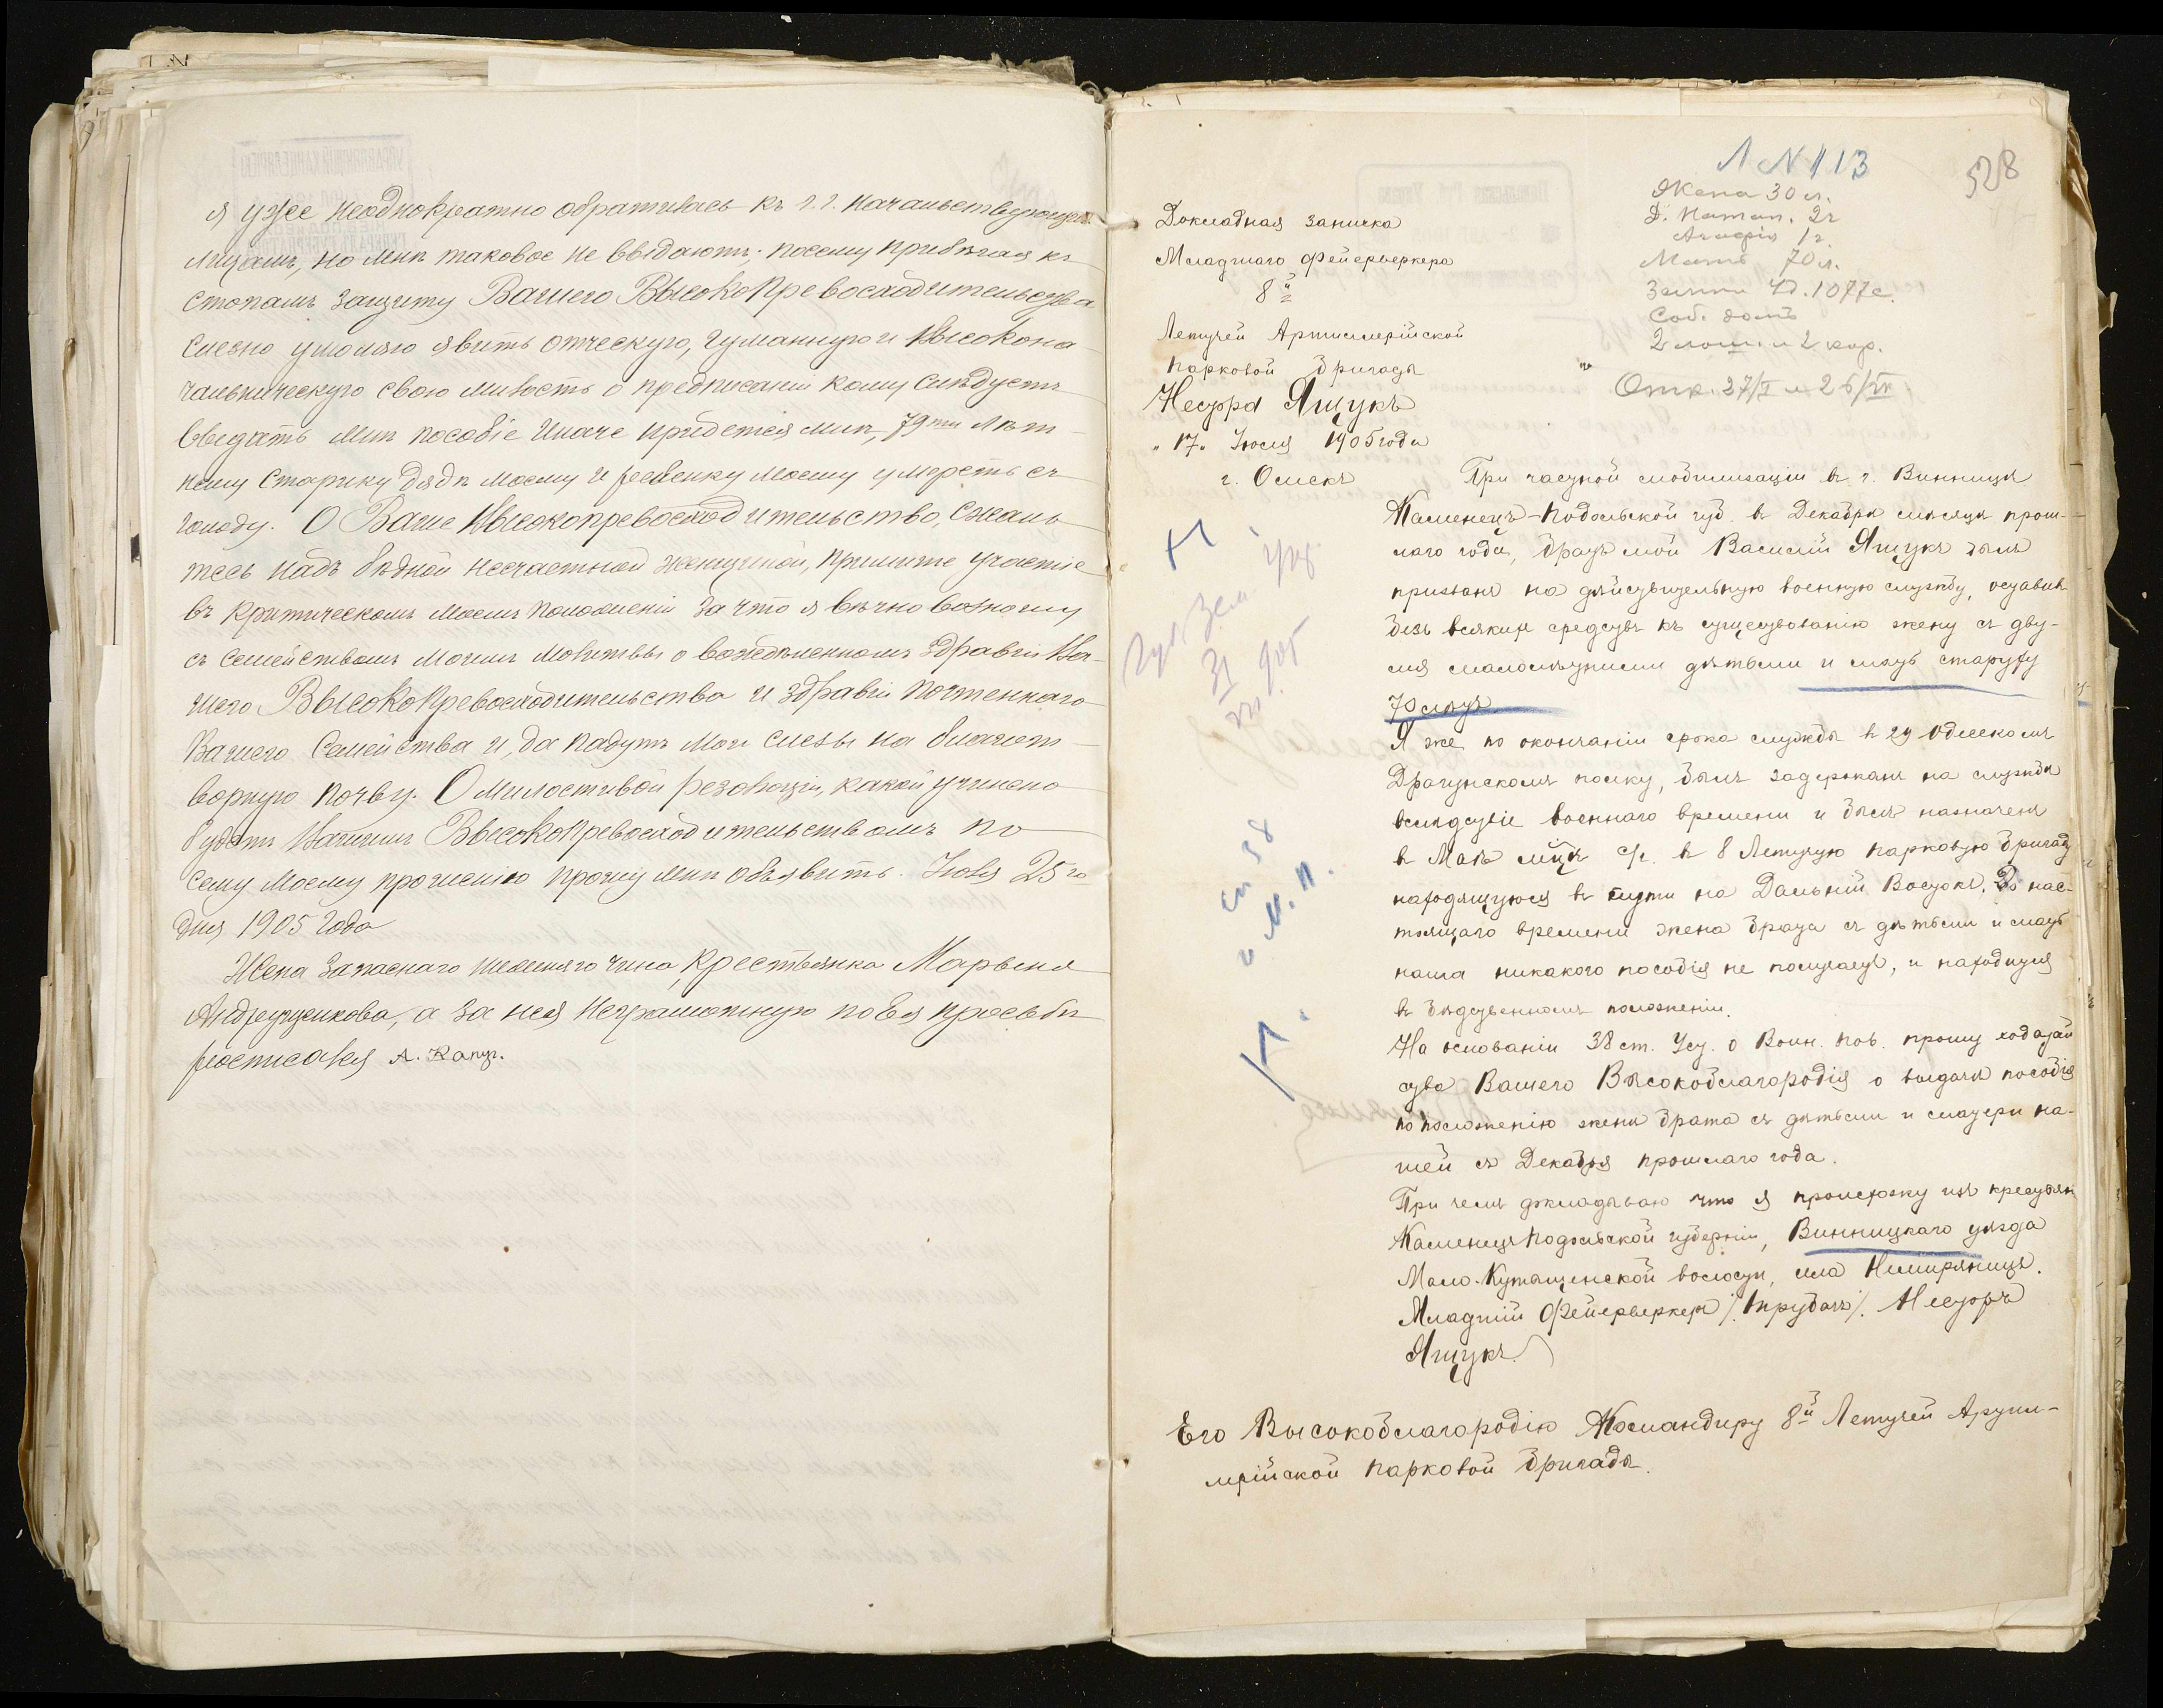 я уже неоднократно обратилась къ г.г. начальствующимъ
лицамъ, но мнѣ таковое не выдаютъ; посему прибѣгая къ
стопамъ защиту Вашего Высокопревосходительства
слезно умоляю явить отческую, гуманную и Высокона
чальническую свою милость о предписаніи кому слѣдуетъ
выдать мнѣ пособіе иначе придется мнѣ, 79ти лѣт-
нему старику дядѣ моему и ребенку моему умереть съ
голоду. О Ваше Высокопревосходительство, сжаль
тесь надъ бѣдной несчастной женщиной, примите участіе
въ критическомъ моемъ положеніи за что я вѣчно возношу
съ семействомъ моимъ молитвы о вожделенномъ здравіи Ва-
шего Высокопревосходительства и здравіи почтеннаго
Вашего семейства и, да падутъ мои слезы на благот-
ворную почву. О милостивой резолюціи, какой учинено
будетъ Вашимъ Высокопревосходительствомъ по
сему моему прошенію прошу мнѣ объявить. Іюля 25го
дня 1905 года
Жена запаснаго нижняго чина, крестьянка Марьяна
Андрущенкова, а за нея неграмотную по ея просьбѣ
росписался А. Капуз.
Л N 113
528
Жена 30 л.
Д. Натал. 2 г
Агафія 1 г.
Мать 70 л.
Земли 4 д. 1077 с.
Соб. домъ
2 лош. и 2 кор.
Отк. 27/X и 26/IX
Докладная записка
Младшаго Фейерверкера
8й
Летучей Артиллерійской
парковой бригады
Нестора Ящукъ
"17" Іюля 1905 года
г. Омскъ
При частной мобилизаціи въ г. Винницѣ
Каменецъ-Подольской губ. въ Декабрѣ мѣсяцѣ прош-
лаго года, братъ мой Василій Ящукъ былъ
призванъ на дѣйствительную военную службу, оставивъ
безъ всякихъ средствъ къ существованію жену съ дву-
мя малолѣтними дѣтьми и мать старуху
70 лѣтъ.
Я же по окончаніи срока службы въ 29 Одесскомъ
Драгунскомъ полку, былъ задержанъ на службѣ
вслѣдствіе военнаго времени и былъ назначенъ
въ Маѣ мцѣ с/г. въ 8 Летучую парковую бригаду
находящуюся въ пути на Дальній Востокъ. До нас-
тоящаго времени жена брата съ дѣтьми и мать
наша никакого пособія не получаетъ, и находится
въ бѣдственномъ положеніи.
На основаніи 38 ст. Уст. о Воин. пов. прошу ходатай
ства Вашего Высокоблагородія о выдачѣ пособія
по положенію женѣ брата съ дѣтьми и матери на-
шей съ Декабря прошлаго года.
При чемъ докладываю что я происхожу изъ крестьян
Каменецъ Подольской губерніи, Винницкаго уѣзда
Мало-Кутыщенской волости, села Немиринецъ.
Младшій Фейерверкеръ /Трубачъ/. Несторъ
Ящукъ.
Его Высокоблагородію Командиру 8й Летучей Артил-
лерійской парковой бригады.